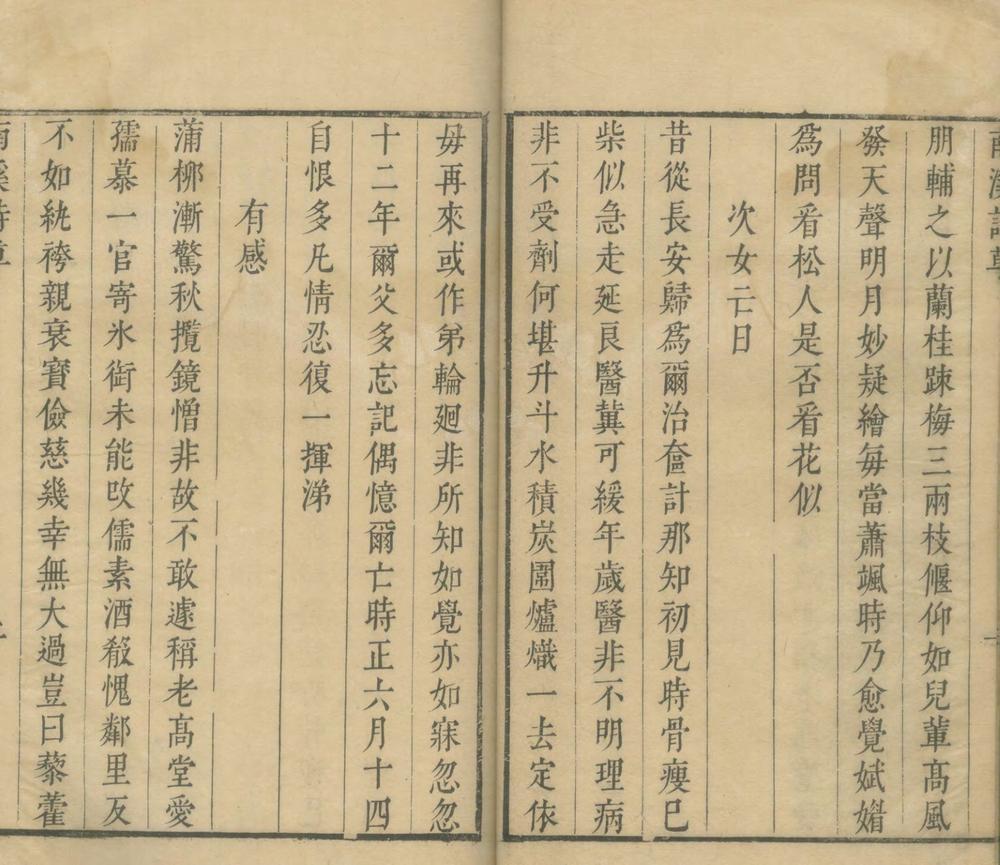 朋輔之以蘭桂踈梅三兩枝偃仰如兒輩髙風
發天聲明月妙疑繪每當蕭颯時乃愈覺娬媚
為問看松人是否看花似
次女亡日
昔從長安歸為爾治奩計那知初見時骨瘦已
柴似急走延良醫冀可緩年歲醫非不明理病
非不受劑何堪升斗水積炭圍爐熾一去定依
毋再來或作弟輪廻非所知如覺亦如寐忽忽
十二年爾父多忘記偶憶爾亡時正六月十四
自恨多凡情忍復一揮涕
有感
蒲柳漸驚秋攬鏡憎非故不敢遽稱老髙堂愛
孺慕一官寄氷銜未能改儒素酒殽愧鄰里反
不如紈袴親衰寶儉慈幾幸無大過豈曰藜藿